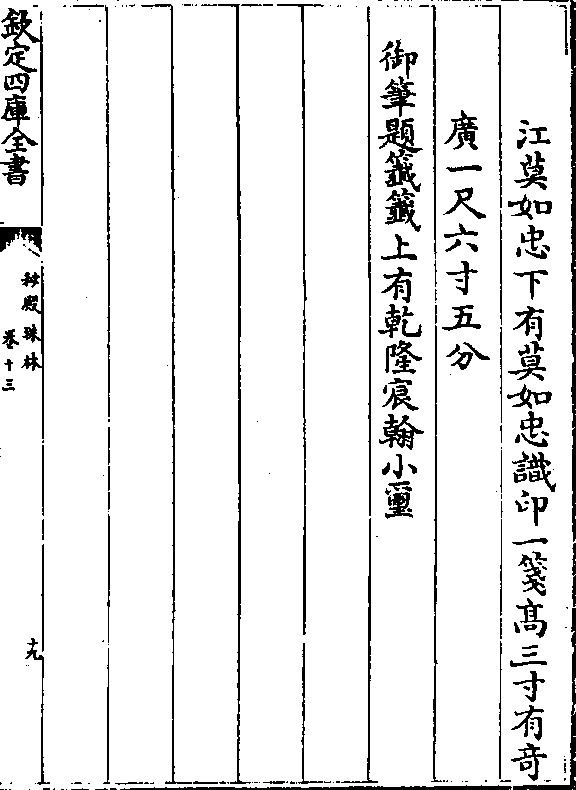 江莫如忠下有莫如忠識印一箋髙三寸有竒
廣一尺六寸五分
御筆題籤籤上有乾隆宸翰小璽
欽定四庫全書
秘殿珠林
卷十三
十九